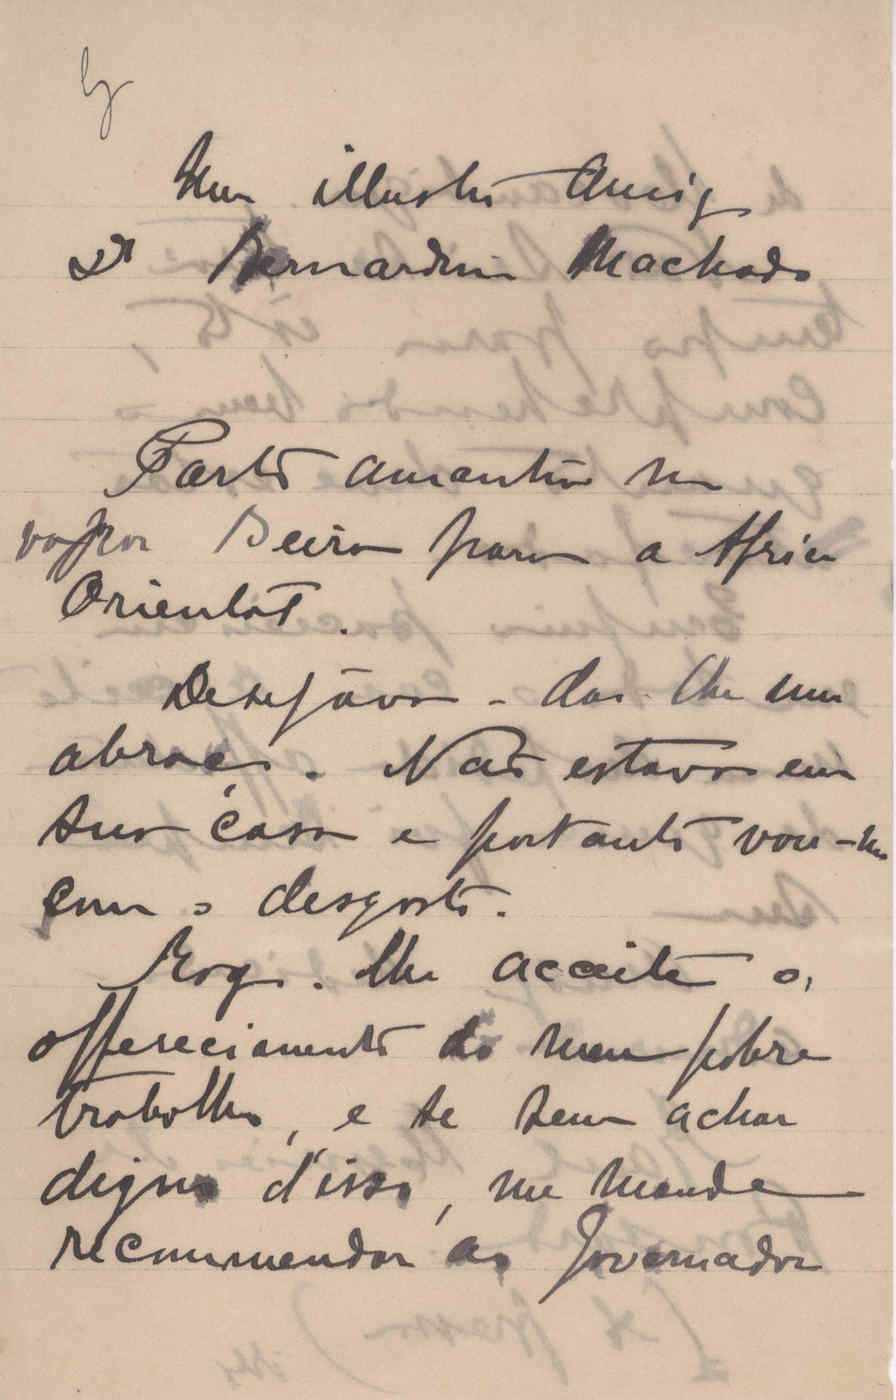 Meu illustre Amigo
Dr Bernardino Machado
Parto amanhã no
vapor Beira para a Africa
Oriental.
Desejava-dar-lhe um
abraço. Não estava em
sua casa e portanto vou-me
com o desgosto.
Rogo-lhe acceite o
offerecimento do meu pobre
trabalho, e se sem achar
digno d'isso, me mande
recommendar ao Governador